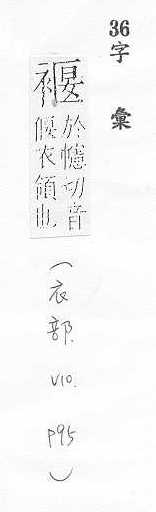 36
字彙
褗
於幰切音
偃衣領也
(衣部. V10. P95)